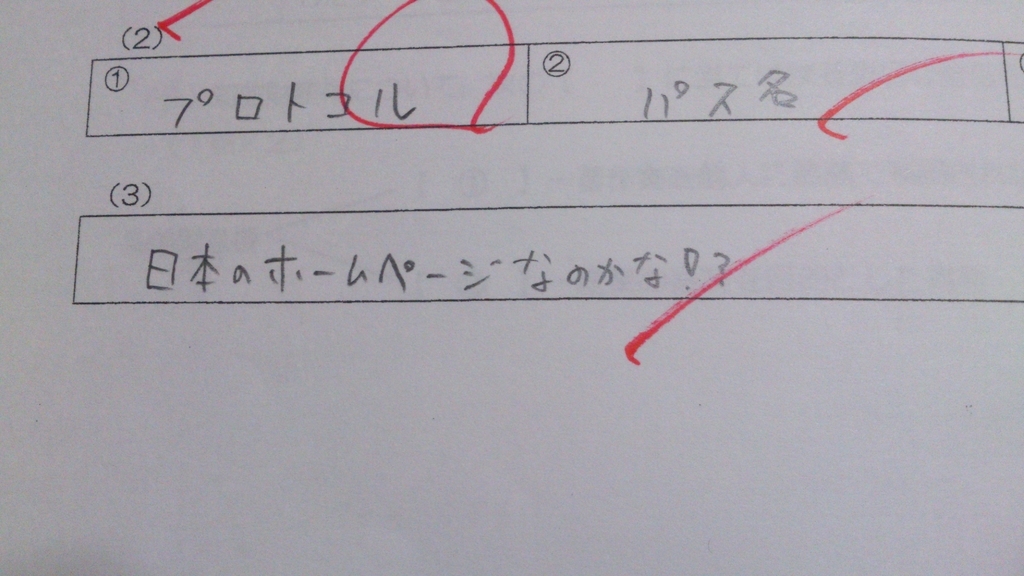 (2)
① プロトコル ② パス名
(3)
日本のホームページなのかな!?